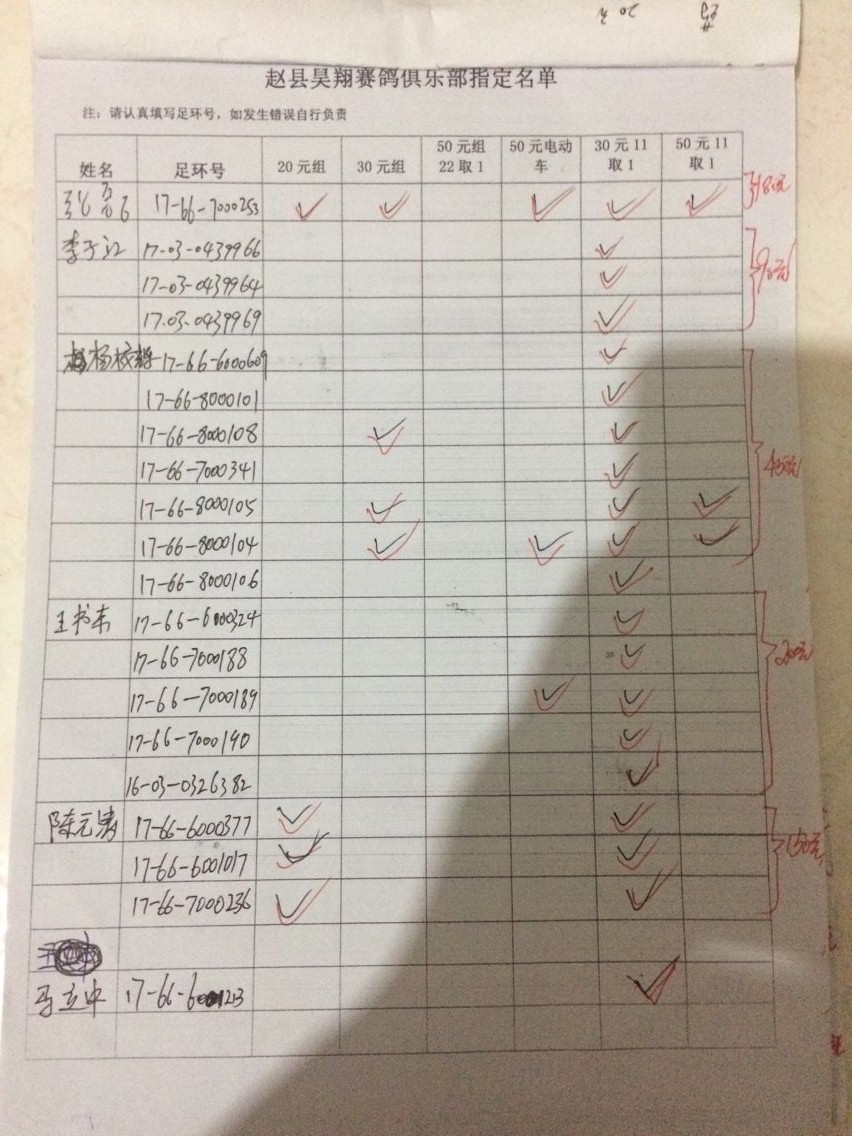 赵县昊翔赛鸽俱乐部指定名单
注：请认真填写足环号，如发生错误自行负责
姓名 足环号 20元组 30元组 50元组22取1 50元电动车 30元11取1 50元11取1
17-66-7000253 ✓ ✓ ✓ ✓ ✓ 180元
李子江 17-03-0439966 ✓ 90元
17-03-0439964 ✓
17.03-0439969 ✓
杨校辉 17-66-6000609 ✓
17-66-8000101 ✓
17-66-8000108 ✓ ✓
17-66-7000341 ✓
17-66-8000105 ✓ ✓ ✓
17-66-8000104 ✓ ✓ ✓ ✓
17-66-8000106 ✓
王书东 17-66-6000324 ✓
17-66-7000188 ✓
17-66-7000189 ✓ ✓
17-66-7000190 ✓
16-03-0326382 ✓
陈元涛 17-66-6000377 ✓ ✓
17-66-6001017 ✓ ✓ 150元
17-66-7000236 ✓ ✓
马立中 ✓